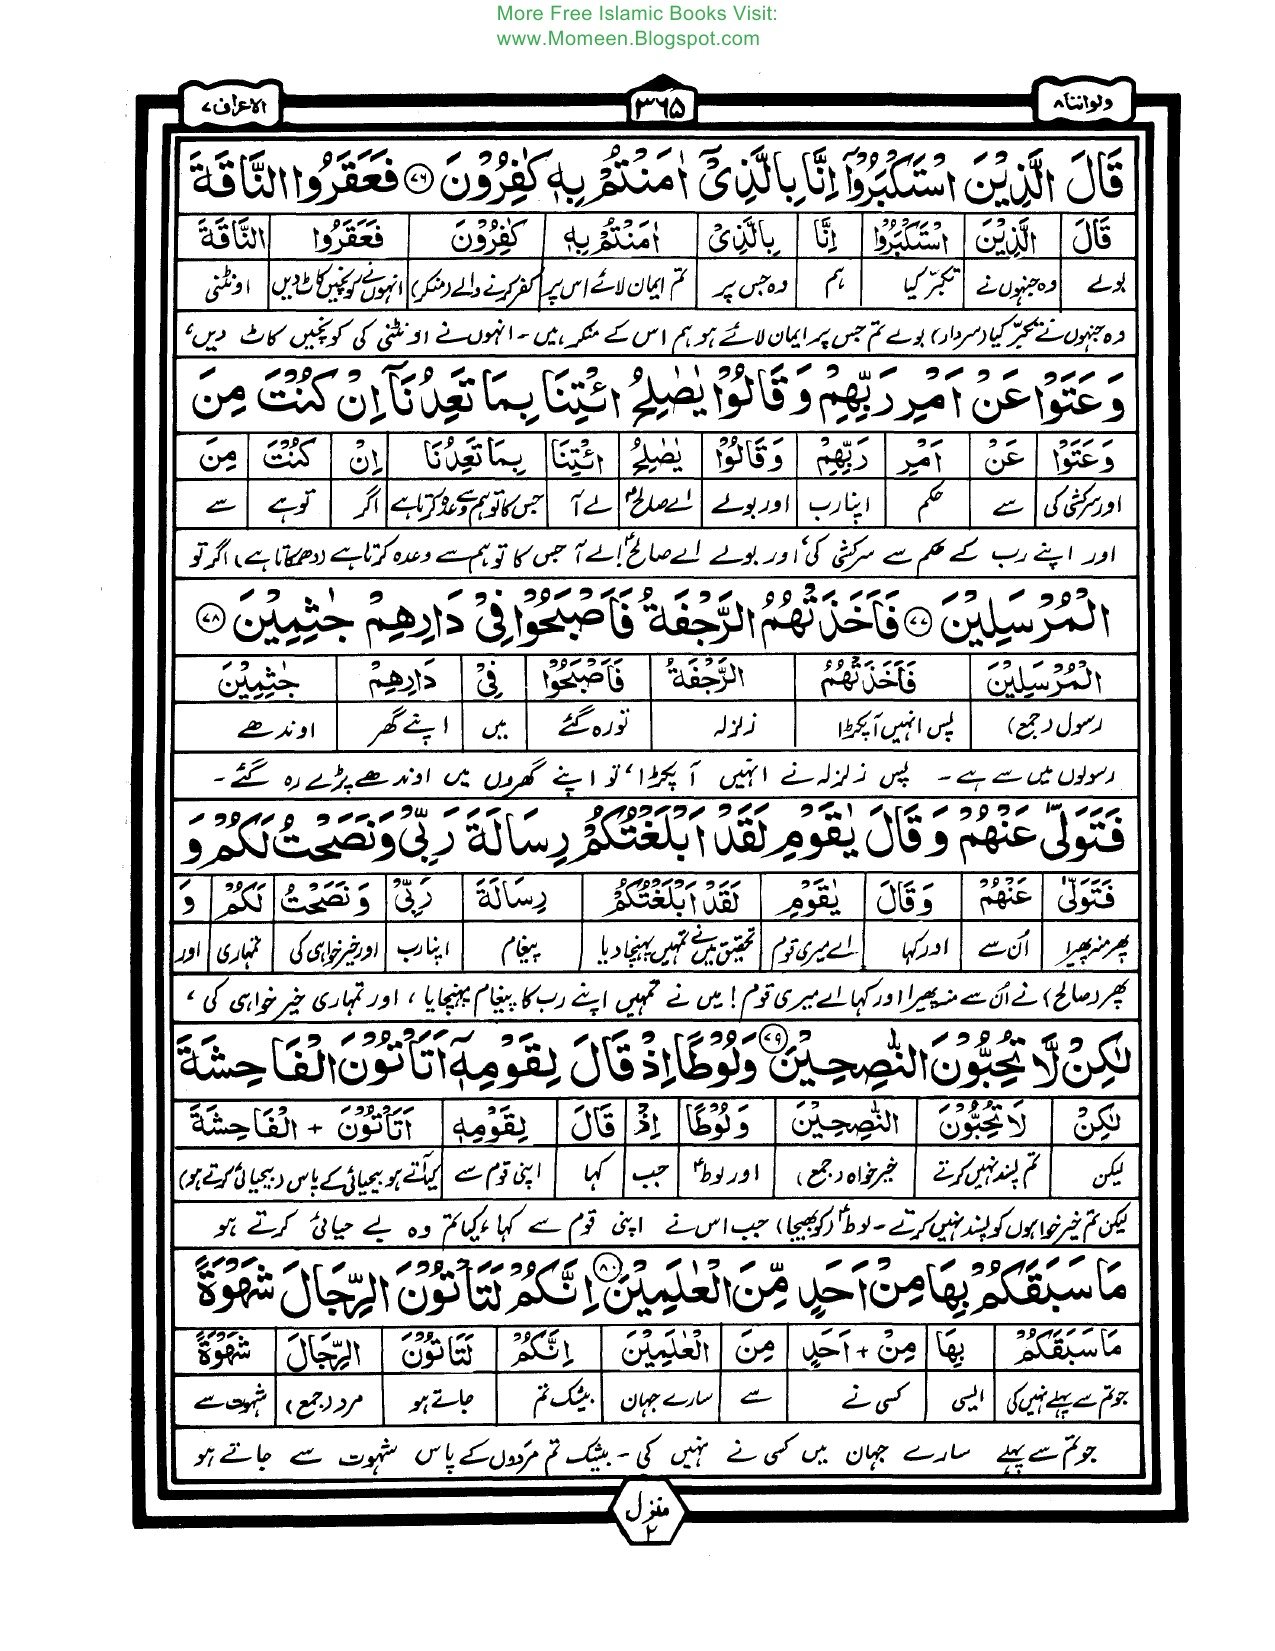 More Free Islamic Books Visit:
www.Momeen.Blogspot.com
ولواننا۸ ۳۶۵ الاعراف۷
قَالَ الَّذِيْنَ اسْتَكْبَرُوْٓا اِنَّا بِالَّذِيْٓ اٰمَنْتُمْ بِهٖ كٰفِرُوْنَ ﴿۷۶﴾ فَعَقَرُوا النَّاقَةَ
قَالَ الَّذِيْنَ اسْتَكْبَرُوْٓا اِنَّا بِالَّذِيْٓ اٰمَنْتُمْ بِهٖ كٰفِرُوْنَ فَعَقَرُوا النَّاقَةَ
بولے وہ جنہوں نے تکبّر کیا ہم وہ جس پر تم ایمان لائے اس پر کفر کرنے والے (منکر) انہوں نے کونچیں کاٹ دیں اونٹنی
وہ جنہوں نے تکبّر کیا (سردار) بولے تم جس پر ایمان لائے ہو ہم اس کے منکر ہیں - انہوں نے اونٹنی کی کونچیں کاٹ دیں،
وَعَتَوْا عَنْ اَمْرِ رَبِّهِمْ وَقَالُوْا يٰصٰلِحُ ائْتِنَا بِمَا تَعِدُنَآ اِنْ كُنْتَ مِنَ
وَعَتَوْا عَنْ اَمْرِ رَبِّهِمْ وَقَالُوْا يٰصٰلِحُ ائْتِنَا بِمَا تَعِدُنَا اِنْ كُنْتَ مِنَ
اور سرکشی کی سے حکم اپنا رب اور بولے اے صالحؑ لے آ جس کا تو ہم سے وعدہ کرتا ہے اگر تو ہے سے
اور اپنے رب کے حکم سے سرکشی کی، اور بولے اے صالحؑ! لے آ جس کا تو ہم سے وعدہ کرتا ہے (دھمکاتا ہے) اگر تو
الْمُرْسَلِيْنَ ﴿۷۷﴾ فَاَخَذَتْهُمُ الرَّجْفَةُ فَاَصْبَحُوْا فِيْ دَارِهِمْ جٰثِمِيْنَ ﴿۷۸﴾
الْمُرْسَلِيْنَ فَاَخَذَتْهُمُ الرَّجْفَةُ فَاَصْبَحُوْا فِيْ دَارِهِمْ جٰثِمِيْنَ
رسول (جمع) پس انہیں آ پکڑا زلزلہ تو رہ گئے میں اپنے گھر اوندھے
رسولوں میں سے ہے - پس زلزلہ نے انہیں آ پکڑا، تو اپنے گھروں میں اوندھے پڑے رہ گئے -
فَتَوَلّٰى عَنْهُمْ وَقَالَ يٰقَوْمِ لَقَدْ اَبْلَغْتُكُمْ رِسَالَةَ رَبِّيْ وَنَصَحْتُ لَكُمْ وَ
فَتَوَلّٰى عَنْهُمْ وَقَالَ يٰقَوْمِ لَقَدْ اَبْلَغْتُكُمْ رِسَالَةَ رَبِّيْ وَنَصَحْتُ لَكُمْ وَ
پھر منہ پھیرا اُن سے اور کہا اے میری قوم تحقیق میں نے تمہیں پہنچا دیا پیغام اپنا رب اور خیر خواہی کی تمہاری اور
پھر (صالح) نے اُن سے منہ پھیرا اور کہا اے میری قوم! میں نے تمہیں اپنے رب کا پیغام پہنچایا، اور تمہاری خیر خواہی کی،
لٰكِنْ لَّا تُحِبُّوْنَ النّٰصِحِيْنَ ﴿۷۹﴾ وَلُوْطًا اِذْ قَالَ لِقَوْمِهٖٓ اَتَاْتُوْنَ الْفَاحِشَةَ
لٰكِنْ لَا تُحِبُّوْنَ النّٰصِحِيْنَ وَلُوْطًا اِذْ قَالَ لِقَوْمِهٖ اَتَاْتُوْنَ + الْفَاحِشَةَ
لیکن تم پسند نہیں کرتے خیر خواہ (جمع) اور لوطؑ جب کہا اپنی قوم سے کیا آتے ہو بیحیائی کے پاس (بیحیائی کرتے ہو)
لیکن تم خیر خواہوں کو پسند نہیں کرتے - لوطؑ (کو بھیجا) جب اس نے اپنی قوم سے کہا، کیا تم وہ بے حیائی کرتے ہو
مَا سَبَقَكُمْ بِهَا مِنْ اَحَدٍ مِّنَ الْعٰلَمِيْنَ ﴿۸۰﴾ اِنَّكُمْ لَتَاْتُوْنَ الرِّجَالَ شَهْوَةً
مَا سَبَقَكُمْ بِهَا مِنْ + اَحَدٍ مِنَ الْعٰلَمِيْنَ اِنَّكُمْ لَتَاْتُوْنَ الرِّجَالَ شَهْوَةً
جو تم سے پہلے نہیں کی ایسی کسی نے سے سارے جہان بیشک تم جاتے ہو مرد (جمع) شہوت سے
جو تم سے پہلے سارے جہان میں کسی نے نہیں کی - بیشک تم مردوں کے پاس شہوت سے جاتے ہو
منزل ۲